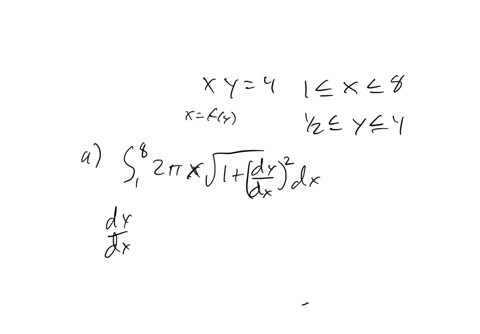 x y = 4   1 ≤ x ≤ 8
x = f(y)   1/2 ≤ y ≤ 4
a) ∫₁⁸ 2π x √(1 + (dy/dx)²) dx
dy/dx